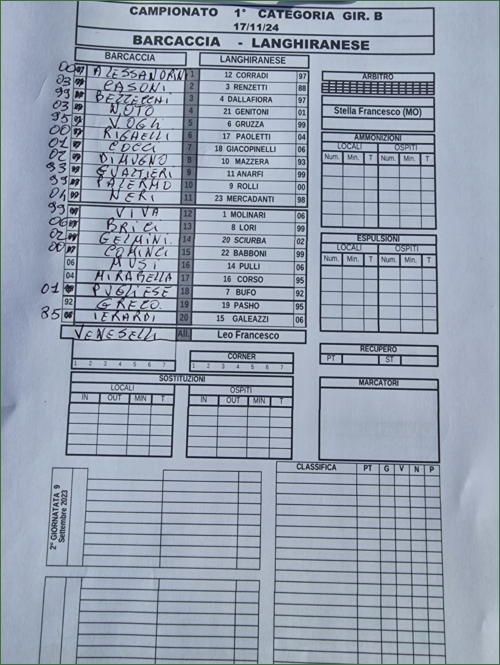 CAMPIONATO 1° CATEGORIA GIR. B
17/11/24
BARCACCIA - LANGHIRANESE
BARCACCIA LANGHIRANESE
ALESSANDRINI 1 12 CORRADI 97
03 CASONI 2 3 RENZETTI 88
99 3 4 DALLAFIORA 97
03 NUTO 4 21 GENITONI 01
95 VOGLI 5 6 GRUZZA 99
00 RIGHELLI 6 17 PAOLETTI 04
01 COCCI 7 18 GIACOPINELLI 06
02 DIMUGNO 8 10 MAZZERA 93
93 GUALTIERI 9 11 ANARFI 99
99 PALERMO 10 9 ROLLI 00
04 NERI 11 23 MERCADANTI 98
99 VIVA 12 1 MOLINARI 06
06 BRICI 13 8 LORI 99
02 GELMINI 14 20 SCIURBA 02
00 COMINCI 15 22 BABBONI 99
06 MUSI 16 14 PULLI 06
04 MIRABELLA 17 16 CORSO 95
01 PUGLIESE 18 7 BUFO 92
92 GRECO 19 19 PASHO 95
85 IERARDI 20 15 GALEAZZI 06
VENESELLI All. Leo Francesco
ARBITRO
Stella Francesco (MO)
AMMONIZIONI
LOCALI OSPITI
Num. Min. T Num. Min. T
ESPULSIONI
LOCALI OSPITI
Num. Min. T Num. Min. T
RECUPERO
PT ST
MARCATORI
CORNER
1 2 3 4 5 6 7 1 2 3 4 5 6 7
SOSTITUZIONI
LOCALI OSPITI
IN OUT MIN T IN OUT MIN T
2° GIORNATATA 9
Settembre 2023
CLASSIFICA PT G V N P